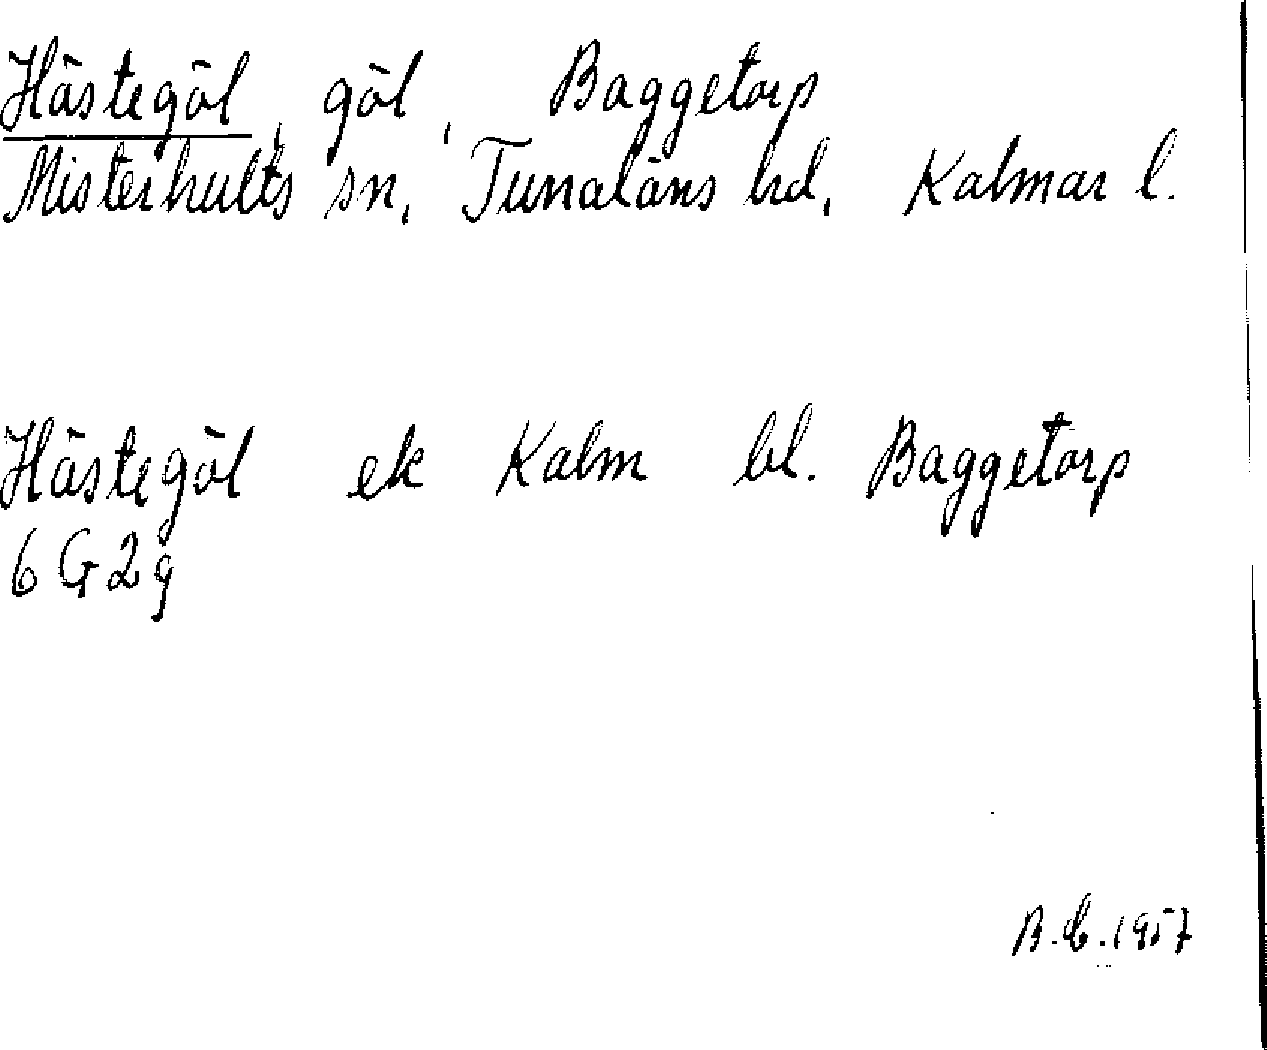 Hästegöl, göl, Baggetorp
Misterhults sn, Tunaläns hd, Kalmar l.
Hästegöl ek Kalm bl. Baggetorp
6 G 2 g
B.C. 1957